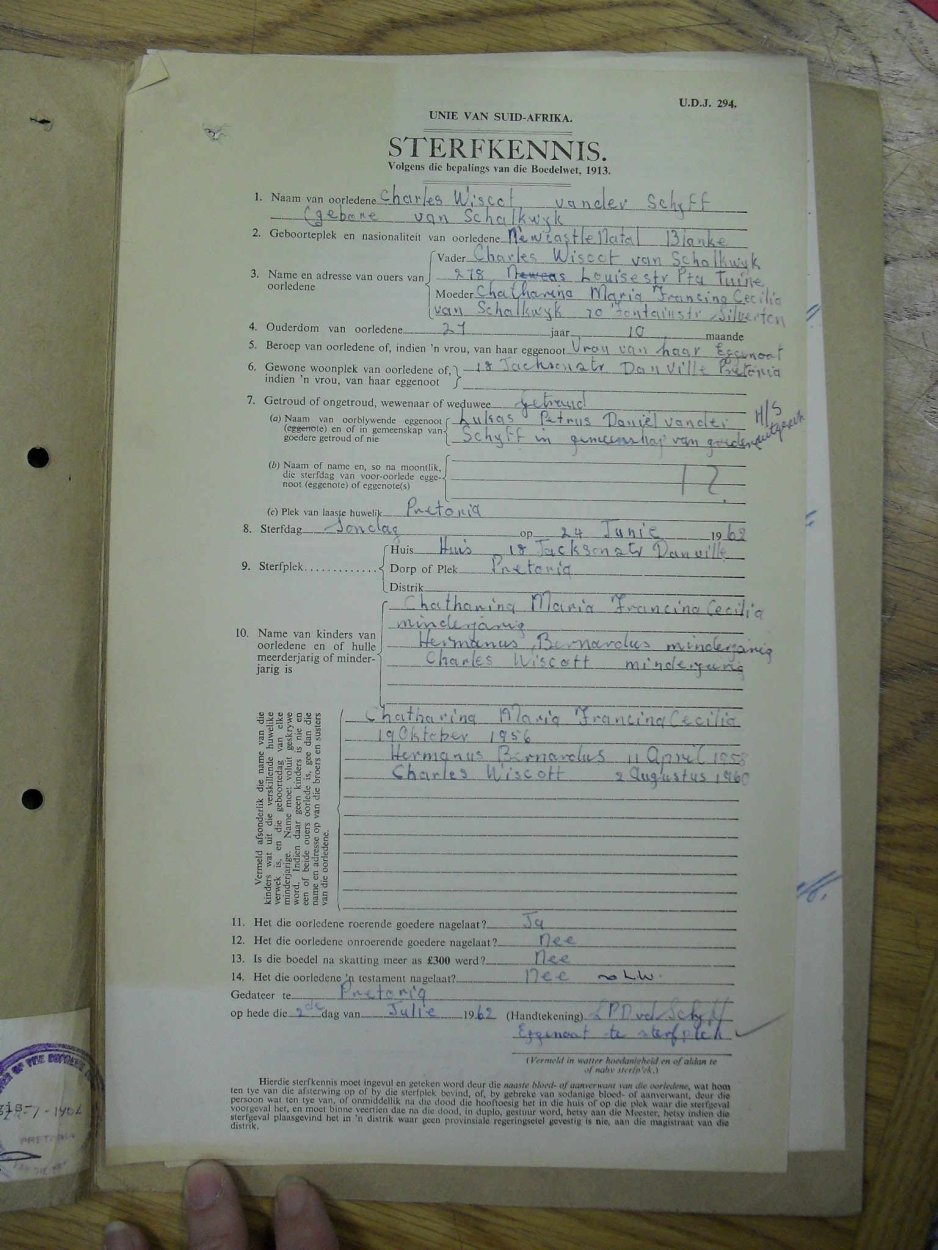 U.D.J. 294.
UNIE VAN SUID-AFRIKA.
STERFKENNIS.
Volgens die bepalings van die Boedelwet, 1913.
1. Naam van oorledene Charles Wiscot vander Schyff
(gebore van Schalkwyk
2. Geboorteplek en nasionaliteit van oorledene Newcastle Natal Blanke
3. Name en adresse van ouers van oorledene
Vader Charles Wiscot van Schalkwyk
278 Louisestr Pta Tuine
Moeder Chatharina Maria Francina Cecilia
van Schalkwyk 70 Fontainstr Silverton
4. Ouderdom van oorledene 27 jaar 10 maande
5. Beroep van oorledene of, indien 'n vrou, van haar eggenoot Vrou van haar Eggenoot
6. Gewone woonplek van oorledene of, 18 Jacksonstr Danville Pretoria
indien 'n vrou, van haar eggenoot
7. Getroud of ongetroud, wewenaar of weduwee getroud
(a) Naam van oorblywende eggenoot Lukas Petrus Daniel vander
(eggenote) en of in gemeenskap van Schyff in gemeenskap van goedere
goedere getroud of nie
H/S
(b) Naam of name en, so na moontlik,
die sterfdag van voor-oorlede egge-
noot (eggenote) of eggenote(s)
12.
(c) Plek van laaste huwelik Pretoria
8. Sterfdag Sondag op 24 Junie 1962
9. Sterfplek
Huis Huis 18 Jacksonstr Danville
Dorp of Plek Pretoria
Distrik
10. Name van kinders van
oorledene en of hulle
meerderjarig of minder-
jarig is
Chatharina Maria Francina Cecilia
minderjarig
Hermanus Bernardus minderjarig
Charles Wiscott minderjarig
Vermeld afsonderlik die name van die
kinders wat uit die verskillende huwelike
verwek is, en die geboortedag van elke
minderjarige. Name moet voluit geskrywe
word. Indien daar geen kinders is nie en
een of beide ouers oorlede is, gee dan die
name en adresse op van die broers en susters
van die oorledene.
Chatharina Maria Francina Cecilia
19 Oktober 1956
Hermanus Bernardus 11 April 1958
Charles Wiscott 2 Augustus 1960
11. Het die oorledene roerende goedere nagelaat? Ja
12. Het die oorledene onroerende goedere nagelaat? Nee
13. Is die boedel na skatting meer as £300 werd? Nee
14. Het die oorledene 'n testament nagelaat? Nee
Gedateer te Pretoria
op hede die 2de dag van Julie 1962 (Handtekening) LPD vd Schyff
Eggenoot te sterfplek
(Vermeld in watter hoedanigheid en of aldan te
of naby sterfplek.)
Hierdie sterfkennis moet ingevul en geteken word deur die naaste bloed- of aanverwant van die oorledene, wat hom
ten tye van die afsterwing op of by die sterfplek bevind, of, by gebreke van sodanige bloed- of aanverwant, deur die
persoon wat ten tye van, of onmiddellik na die dood die hooftoesig het in die huis of op die plek waar die sterfgeval
voorgeval het, en moet binne veertien dae na die dood, in duplo, gestuur word, hetsy aan die Meester, hetsy indien die
sterfgeval plaasgevind het in 'n distrik waar geen provinsiale regeringsetel gevestig is nie, aan die magistraat van die
distrik.
PRETORIA